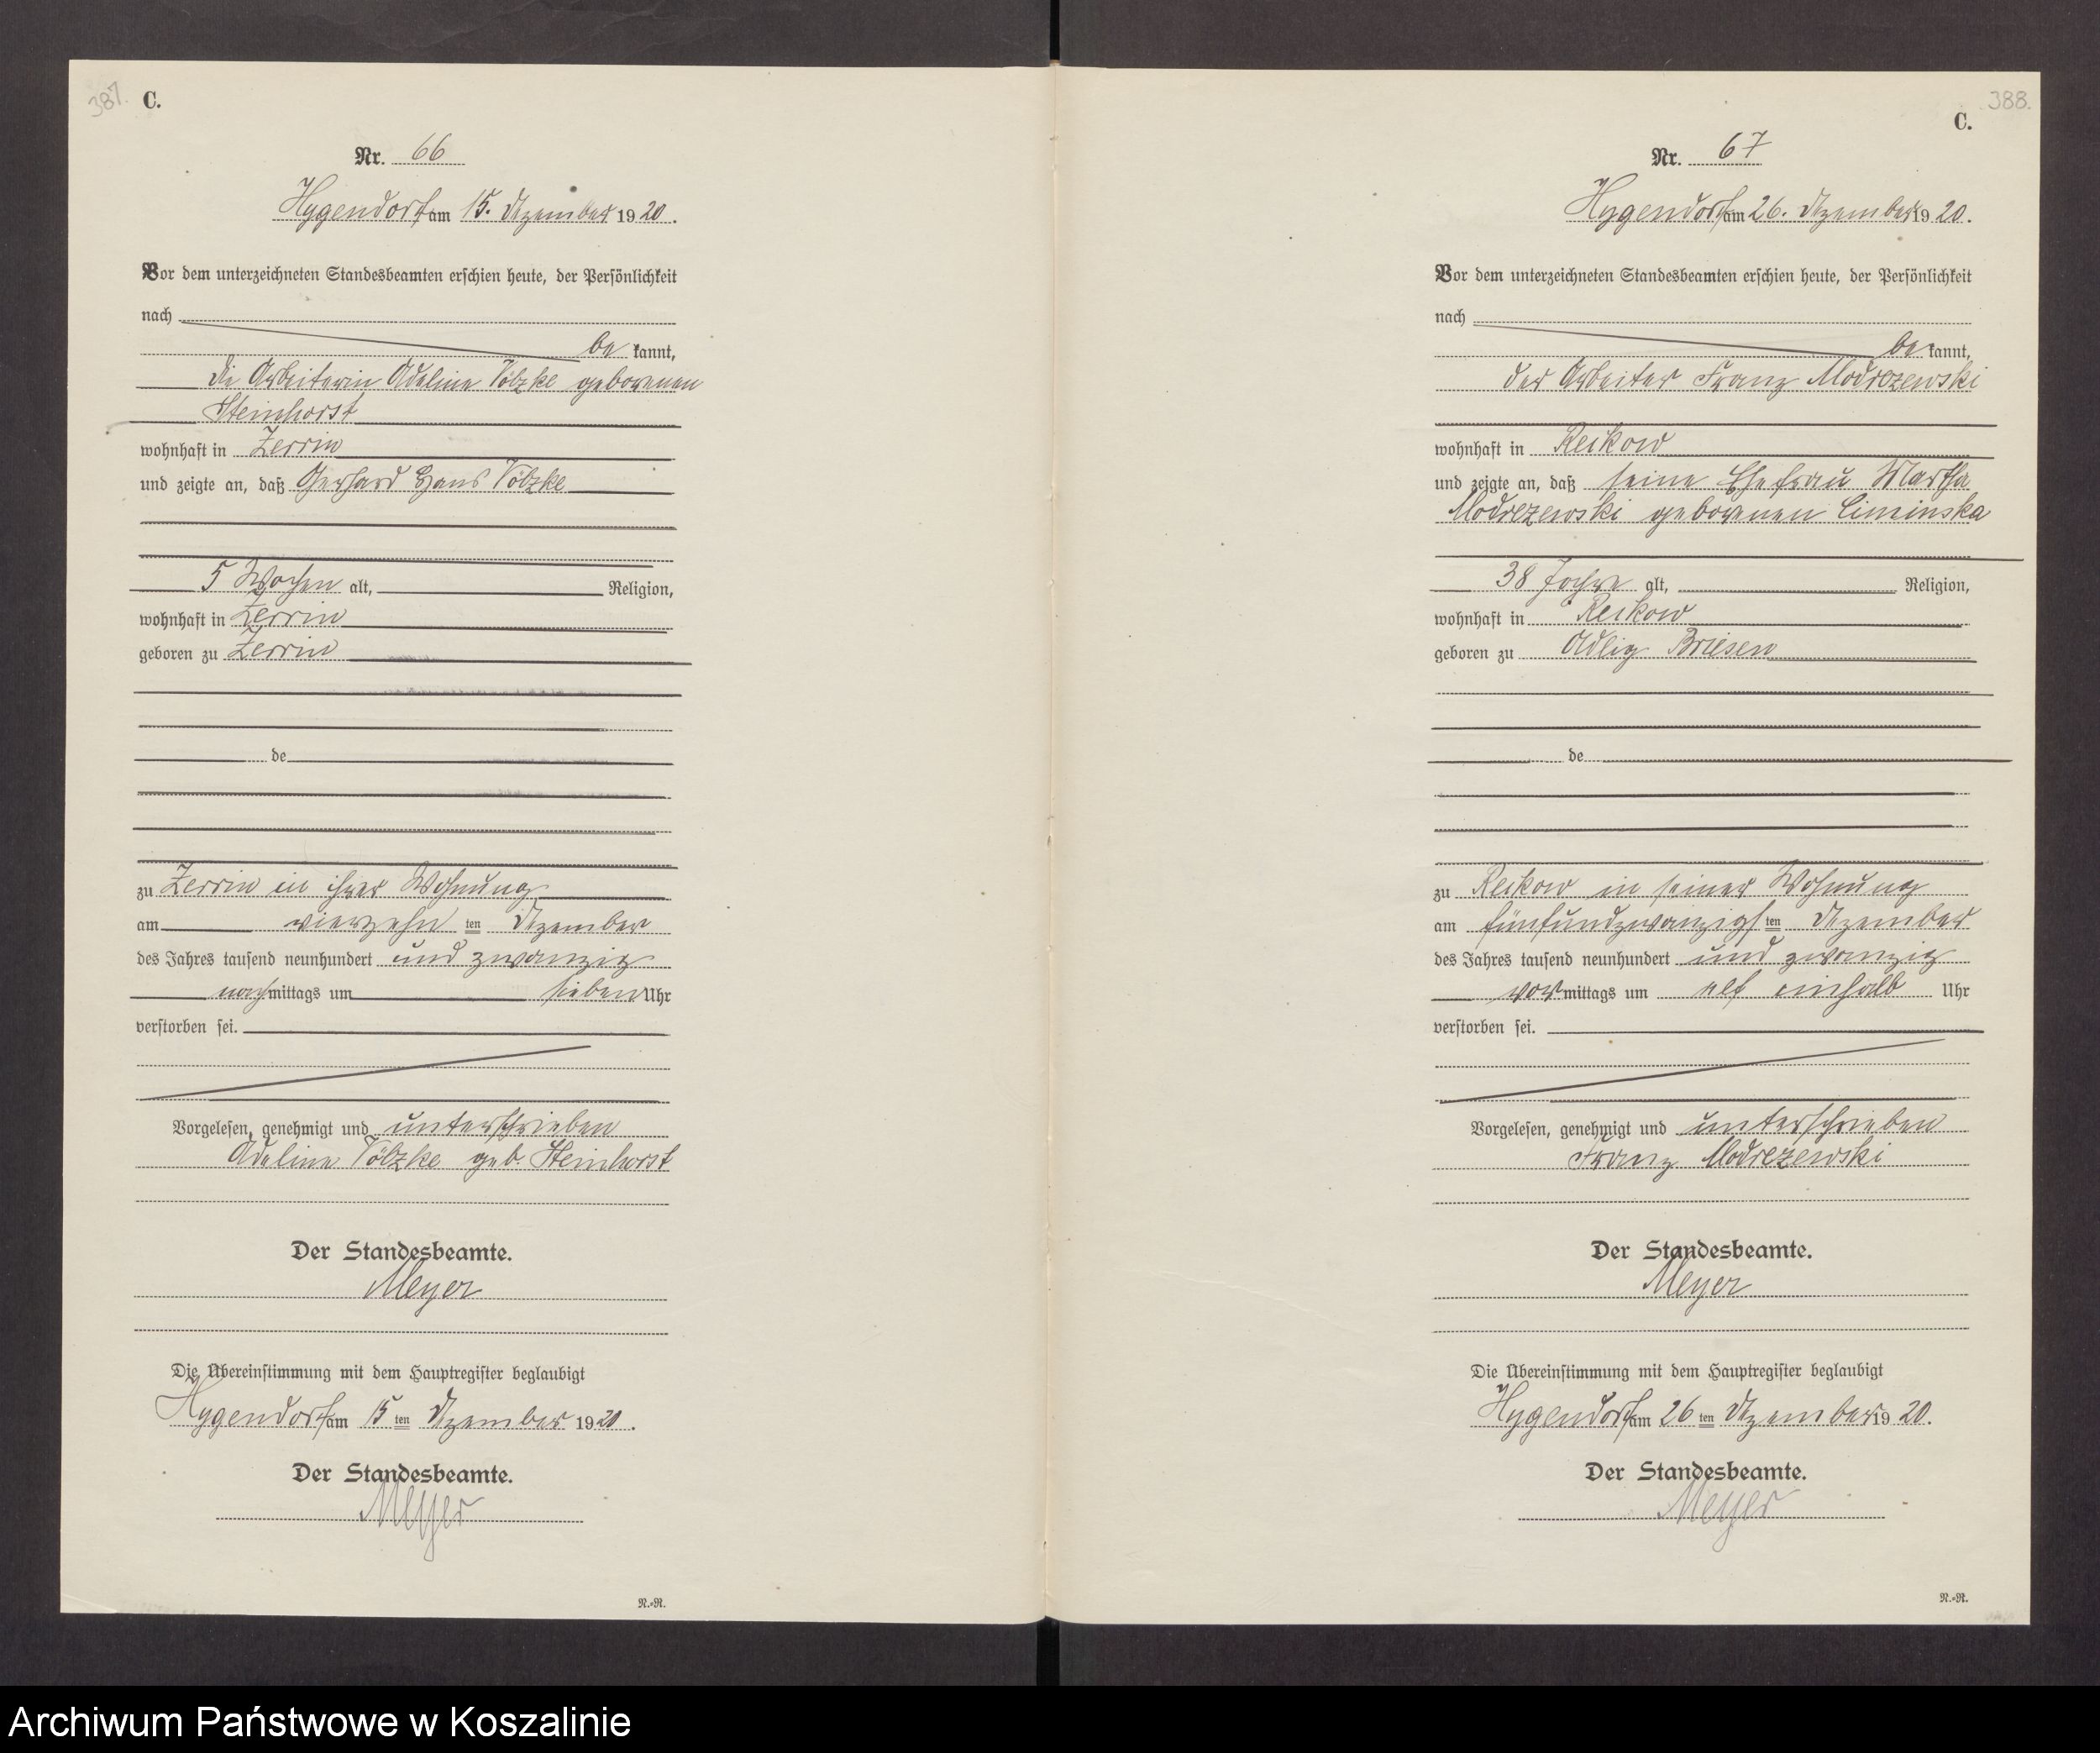 387.
C.
Nr. 66
Hygendorf am 15. Dezember 1920.
Vor dem unterzeichneten Standesbeamten erschien heute, der Persönlichkeit
nach
be kannt,
die Arbeiterin Adeline Völzke geborenen
Steinhorst
wohnhaft in Zerrin
und zeigte an, daß Gerhard Hans Völzke
5 Wochen alt, Religion,
wohnhaft in Zerrin
geboren zu Zerrin
de
zu Zerrin in ihrer Wohnung
am vierzehn ten Dezember
des Jahres tausend neunhundert und zwanzig
nachmittags um sieben Uhr
verstorben sei.
Vorgelesen, genehmigt und unterschrieben
Adeline Völzke geb. Steinhorst
Der Standesbeamte.
Meyer
Die Übereinstimmung mit dem Hauptregister beglaubigt
Hygendorf am 15 ten Dezember 1920.
Der Standesbeamte.
Meyer
N.=N.
388.
C.
Nr. 67
Hygendorf am 26. Dezember 1920.
Vor dem unterzeichneten Standesbeamten erschien heute, der Persönlichkeit
nach
be kannt,
der Arbeiter Franz Modrezewski
wohnhaft in Reikow
und zeigte an, daß seine Ehefrau Martha
Modrezewski geborenen Ciminska
38 Jahre alt, Religion,
wohnhaft in Reikow
geboren zu Adlig Briesen
de
zu Reikow in seiner Wohnung
am fünfundzwanzigs ten Dezember
des Jahres tausend neunhundert und zwanzig
vormittags um elf einhalb Uhr
verstorben sei.
Vorgelesen, genehmigt und unterschrieben
Franz Modrezewski
Der Standesbeamte.
Meyer
Die Übereinstimmung mit dem Hauptregister beglaubigt
Hygendorf am 26 ten Dezember 1920.
Der Standesbeamte.
Meyer
N.=N.
Archiwum Państwowe w Koszalinie